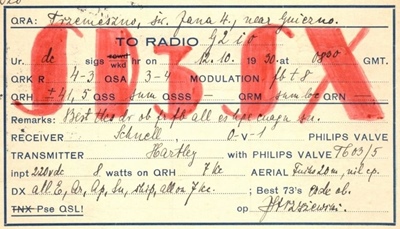 QRA: Trzemeszno, św. Jana 4, near Gniezno.
TO RADIO G2iv
Ur. dc sigs wkd hr on 12.10. 1930. at 0800 GMT.
QRK R 4-3 QSA 3-4 MODULATION fb t8
QRH ±41,5 QSS sum QSSS — QRM sum bc QRN —
Remarks: Best tks dr ob fr fb all es
RECEIVER Schnell, 0-V-1 PHILIPS VALVE
TRANSMITTER Hartley with PHILIPS VALVE TB03/5
inpt 220v dc 8 watts on QRH 7 kc AERIAL Fuchs 20m,
DX all E, ship, all on 7 kc. ; Best 73's es dx ob.
TNX Pse QSL! op
SP3SX